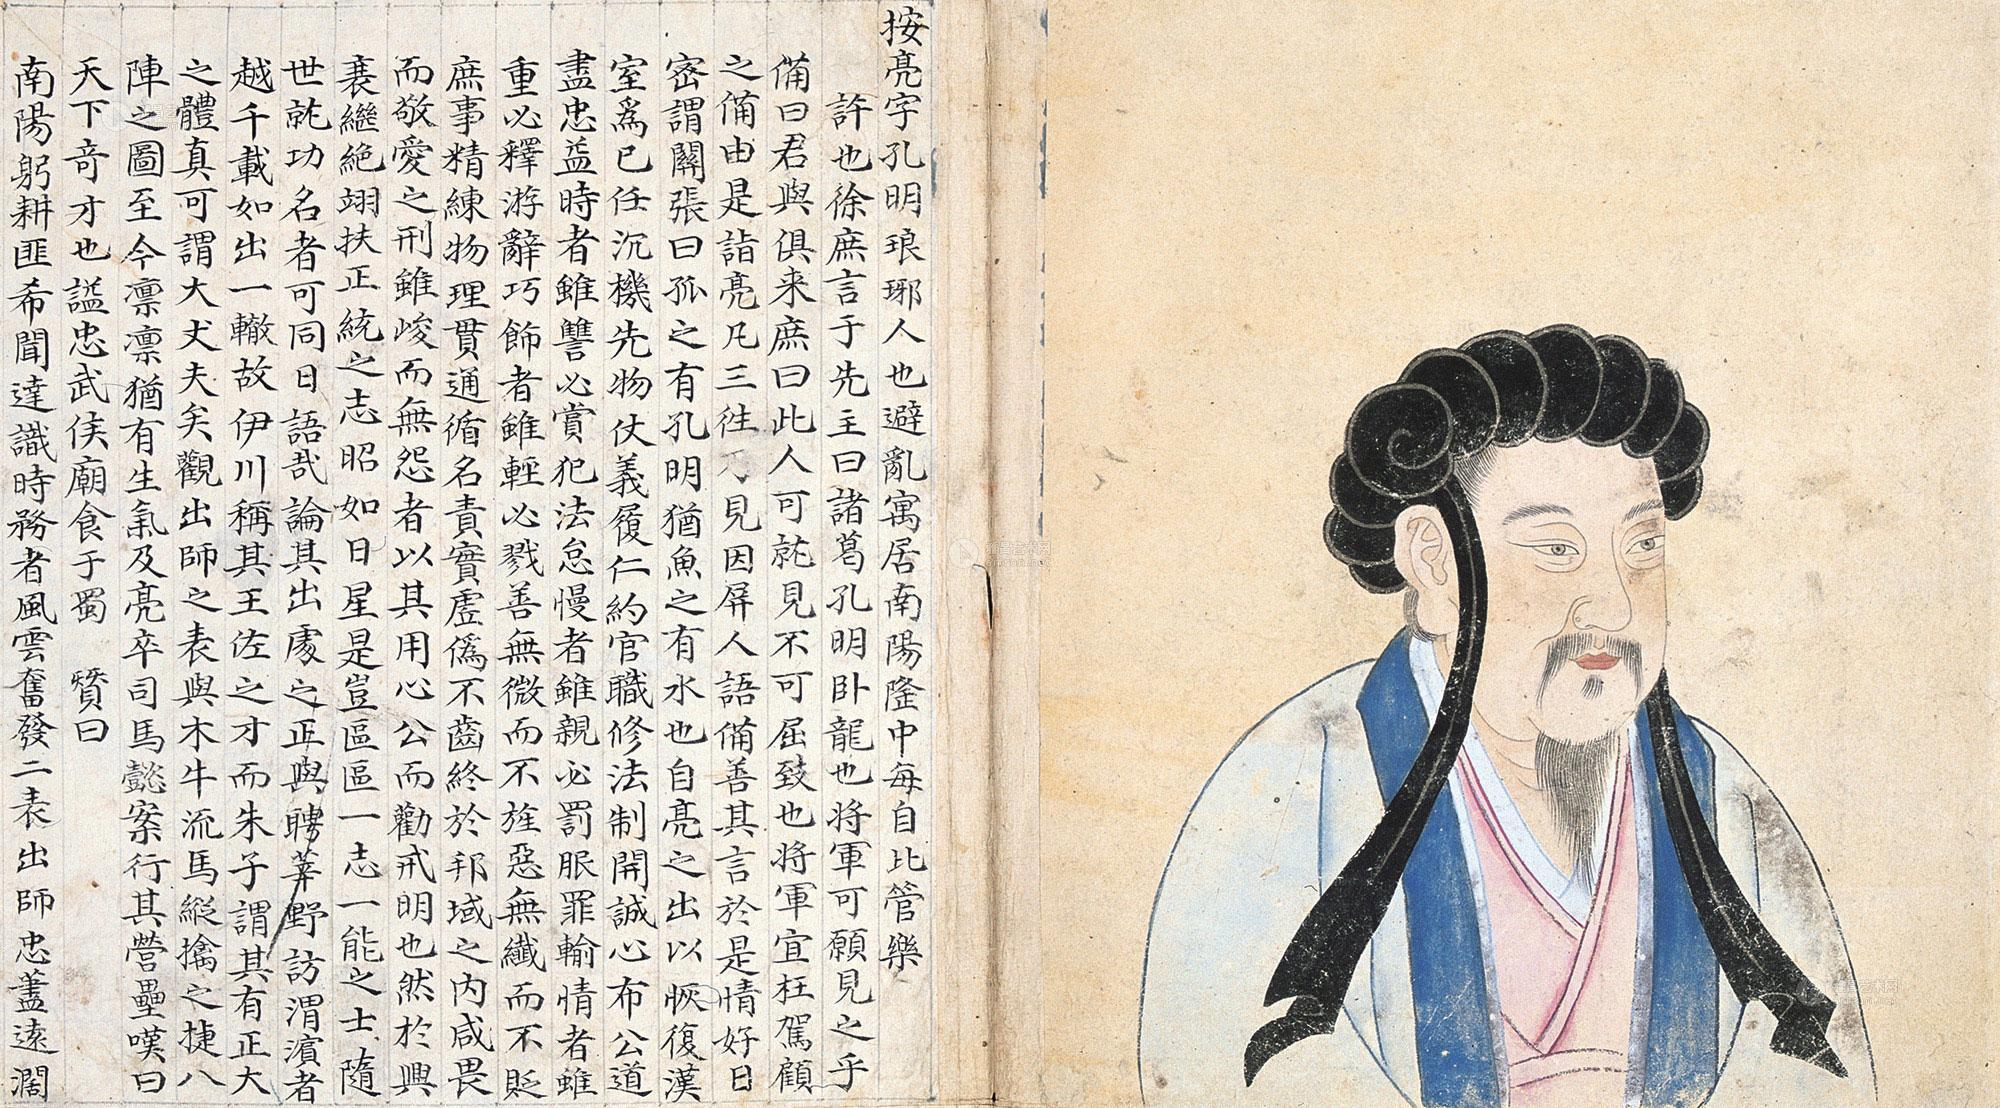 按亮字孔明琅琊人也避亂寓居南陽隆中每自比管樂
許也徐庶言于先主曰諸葛孔明卧龍也将軍可願見之乎
備曰君與俱来庶曰此人可就見不可屈致也将軍宜枉駕顧
之備由是詣亮凡三徃乃見因屏人語備善其言於是情好日
密謂關張曰孤之有孔明猶魚之有水也自亮之出以恢復漢
室爲已任沉機先物仗義履仁約官職修法制開誠心布公道
盡忠益時者雖讐必賞犯法怠慢者雖親必罰服罪輸情者雖
重必釋游辭巧飾者雖輕必戮善無微而不旌惡無纖而不貶
庶事精練物理貫通循名責實虛僞不齒終於邦域之内咸畏
而敬愛之刑雖峻而無怨者以其用心公而勸戒明也然於興
衰繼絶翊扶正統之志昭如日星是豈區區一志一能之士隨
世就功名者可同日語哉論其出處之正與聘莘野訪渭濱者
越千載如出一轍故伊川稱其王佐之才而朱子謂其有正大
之體真可謂大丈夫矣觀出師之表與木牛流馬縱擒之捷八
陣之圖至今凛凛猶有生氣及亮卒司馬懿案行其營壘嘆曰
天下奇才也謚忠武侯廟食于蜀　贊曰
南陽躬耕匪希聞達識時務者風雲奮發二表出師忠藎遠濶